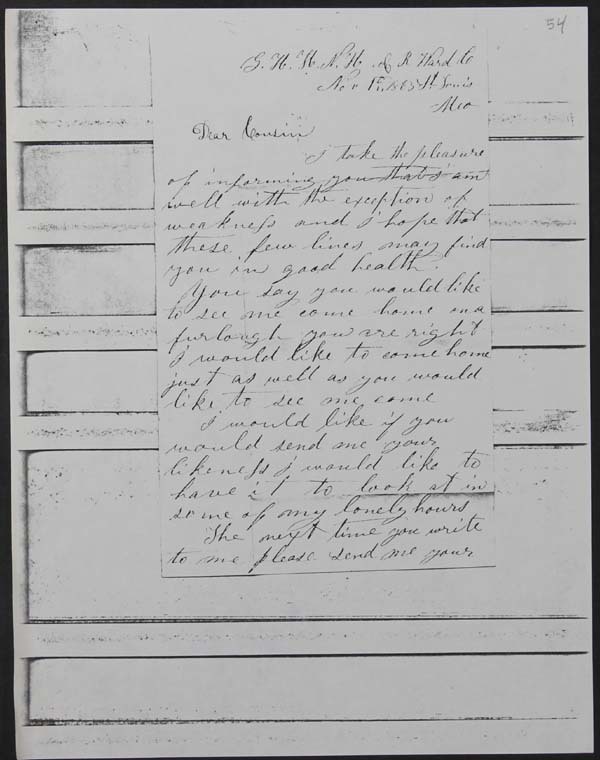 54
G. H. St. N. H. & R Ward 6
Nov 1st, 1863 St Louis
Mo
Dear Cousin
I take the pleasure
of informing you that I am
well with the exception of
weakness and I hope that
these few lines may find
you in good health.
You say you would like
to see me come home on a
furlough you are right
I would like to come home
just as well as you would
like to see me come
I would like if you
would send me your
likeness I would like to
have it to look at in
some of my lonely hours
The next time you write
to me please send me your